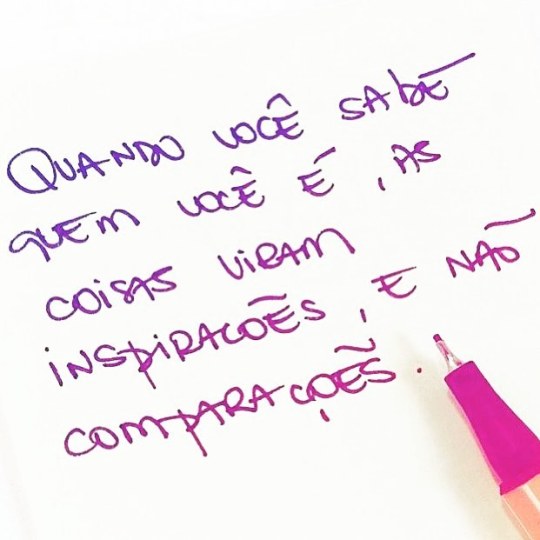 QUANDO VOCÊ SABE
QUEM VOCÊ É, AS
COISAS VIRAM
INSPIRACÕES, E NÃO
COMPARAÇÕES.